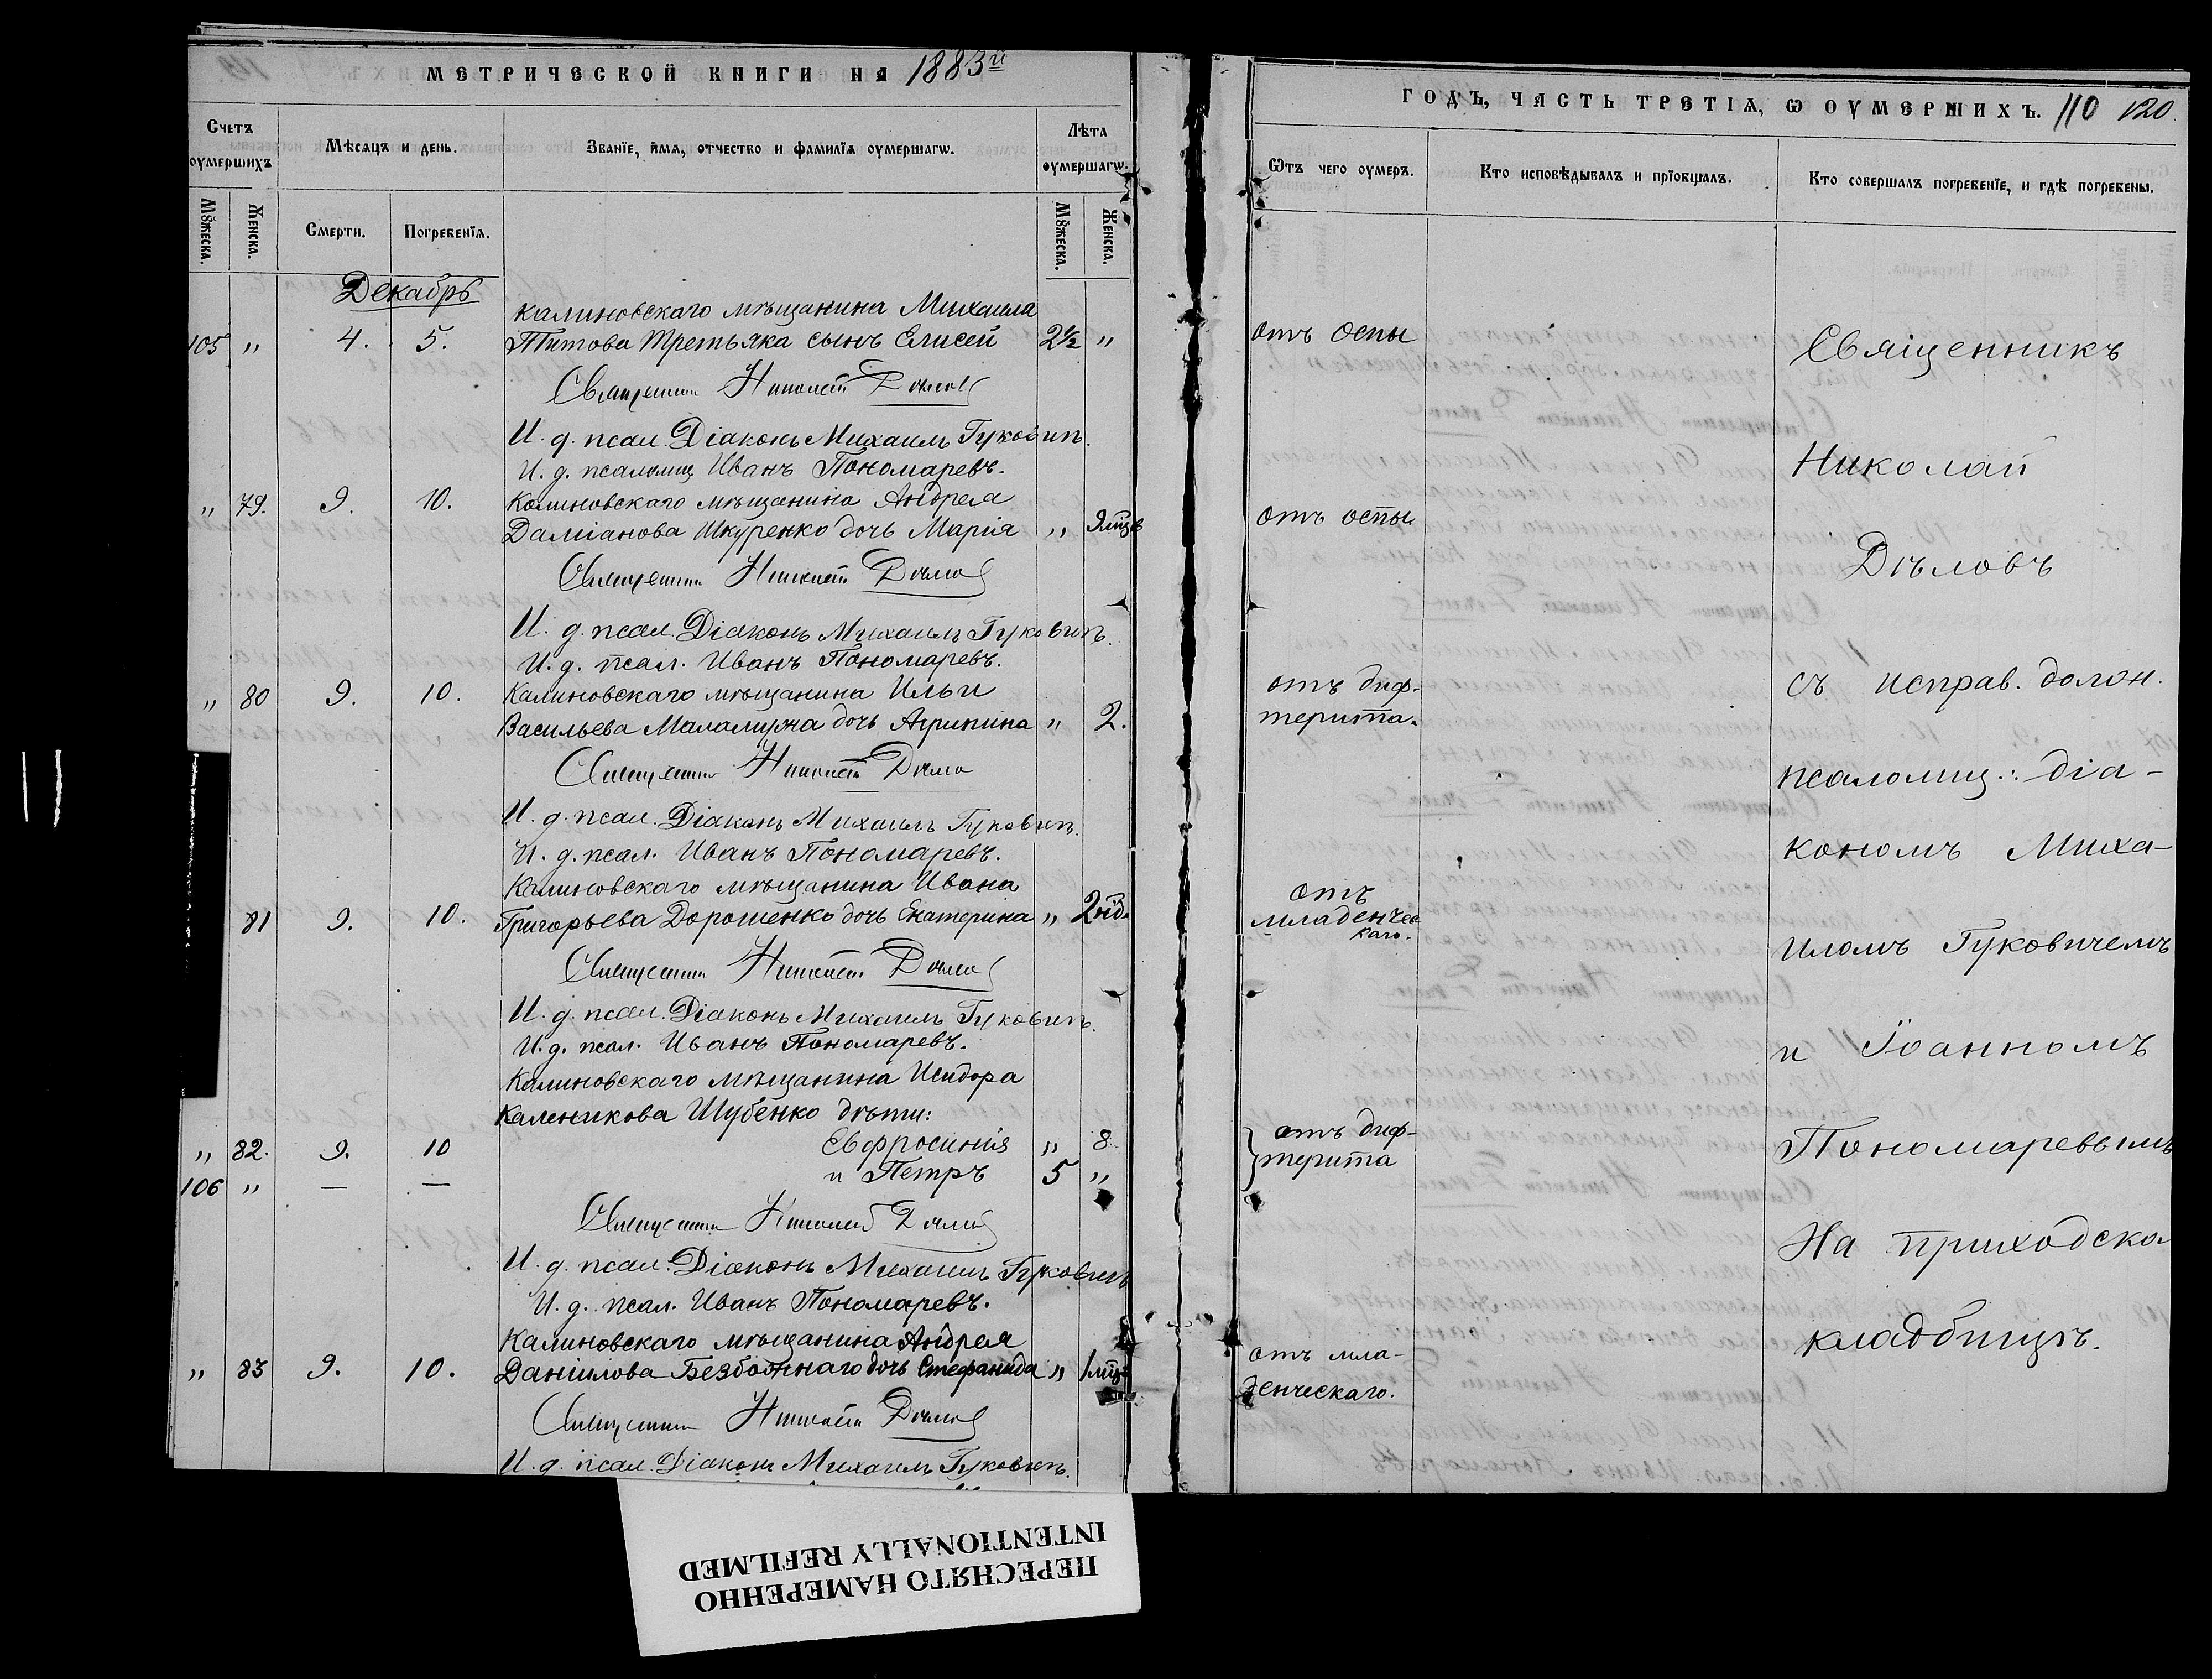 МЕТРИЧЕСКОЙ КНИГИ НА 1883й
Счетъ оумершихъ
Мѣсяцъ и день.
Званїе, имя, отчество и фамилїя оумершагѡ.
Лѣта оумершагѡ.
Мꙋжеска.
Женска.
Смерти.
Погребенїя.
Мꙋжеска.
Женска.
Декабрь
Калиновскаго мѣщанина Михаила
105 " 4. 5. Титова Третьяка сынъ Елисей 2½ "
Священникъ Николай Дѣловъ
И. д. псал. Діаконъ Михаилъ Гуковичъ.
И. д. псаломщ Иванъ Пономаревъ.
" 79. 9. 10. Калиновскаго мѣщанина Андрея
Даміанова Шкуренко дочь Марія " 9 мцв
Священникъ Николай Дѣловъ
И. д. псал. Діаконъ Михаилъ Гуковичъ.
И. д. псал. Иванъ Пономаревъ.
" 80 9. 10. Калиновскаго мѣщанина Ильи
Васильева Маламужа дочь Агрипина " 2.
Священникъ Николай Дѣловъ
И. д. псал. Діаконъ Михаилъ Гуковичъ.
И. д. псал. Иванъ Пономаревъ.
Калиновскаго мѣщанина Ивана
81 9. 10. Григорьева Дорошенко дочь Екатерина " 2 нд.
Священникъ Николай Дѣловъ
И. д. псал. Діаконъ Михаилъ Гуковичъ.
И. д. псал. Иванъ Пономаревъ.
Калиновскаго мѣщанина Исидора
Каленикова Шубенко дѣти:
" 82. 9. 10 Евфросинія " 8
106 " — — и Петръ 5 "
Священникъ Николай Дѣловъ
И. д. псал. Діаконъ Михаилъ Гуковичъ
И. д. псал. Иванъ Пономаревъ.
Калиновскаго мѣщанина Андрея
" 83 9. 10. Даніилова Безбожнаго дочь Стефанида " 1 мцъ
Священникъ Николай Дѣловъ
И. д. псал. Діаконъ Михаилъ Гуковичъ.
ГОДЪ, ЧАСТЬ ТРЕТІЯ, Ѡ ОУМЕРШИХЪ. 110 120.
Ѿтъ чего оумеръ.
Кто исповѣдывалъ и прїобщалъ.
Кто совершалъ погребенїе, и гдѣ погребены.
отъ оспы
отъ оспы
отъ диф-
терита.
отъ
младенчес
каго.
отъ диф-
терита
отъ мла-
денческаго.
Священникъ
Николай
Дѣловъ
съ исправ. должн.
псаломщ.: діа-
кономъ Миха-
иломъ Гуковичемъ
и Іоанномъ
Пономаревымъ
На приходско
кладбищѣ.
ПЕРЕСНЯТО НАМЕРЕННО
INTENTIONALLY REFILMED